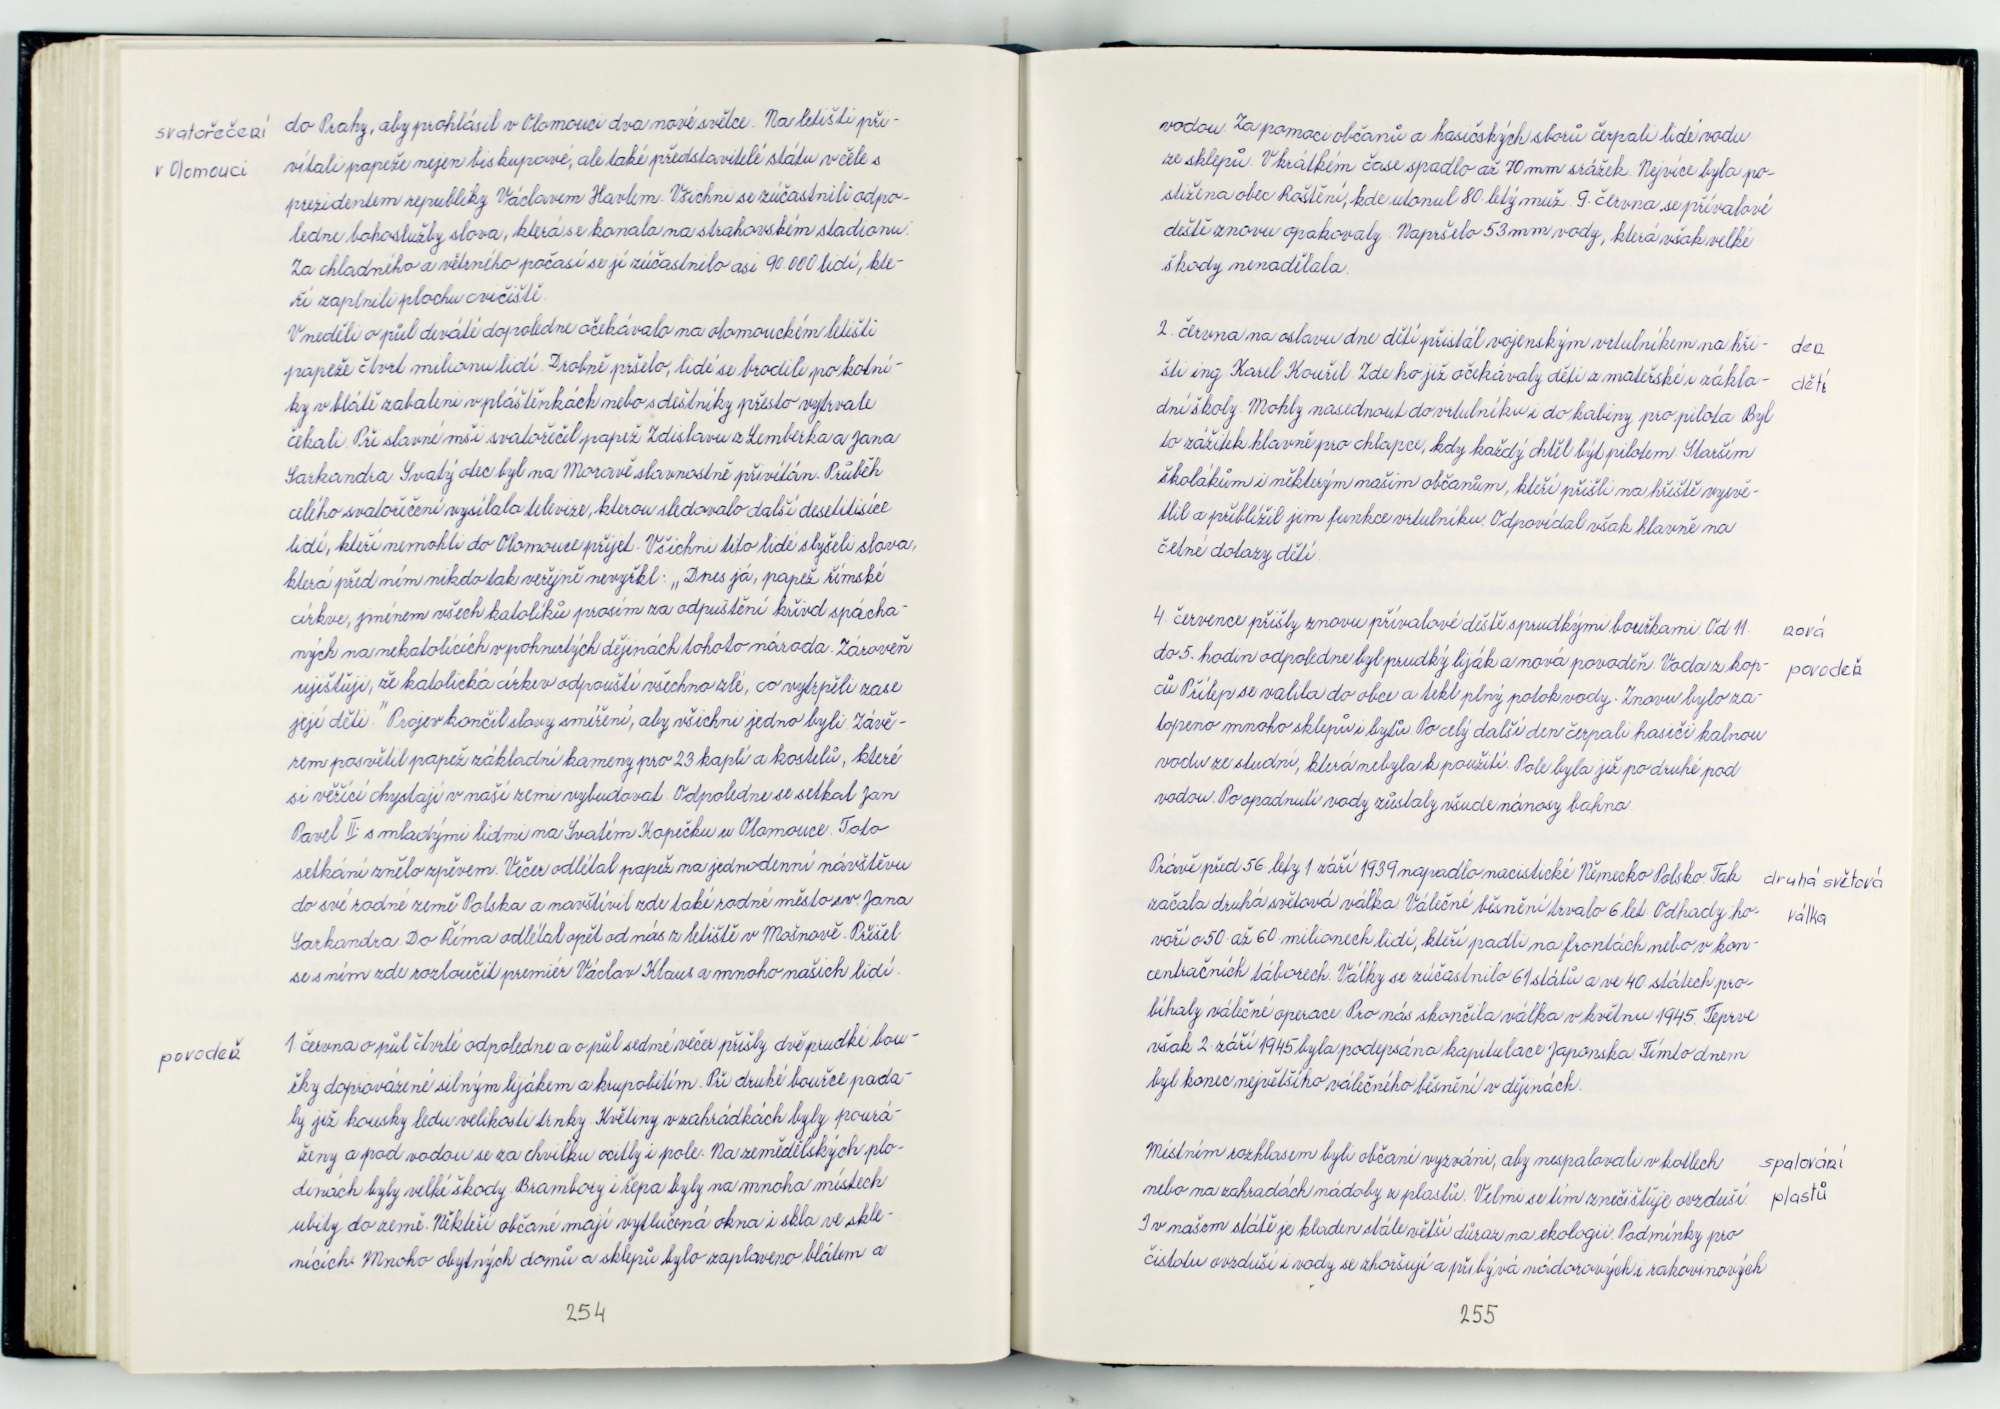 svatořečení
v Olomouci
do Prahy, aby prohlásil v Olomouci dva nové světce. Na letišti při-
vítali papeže nejen biskupové, ale také představitelé státu v čele s
prezidentem republiky Václavem Havlem. Všichni se zúčastnili odpo-
ledne bohoslužby slova, která se konala na strahovském stadionu.
Za chladného a větrného počasí se jí zúčastnilo asi 90.000 lidí, kte-
ří zaplnili plochu cvičiště.
V neděli o půl deváté dopoledne očekávalo na olomouckém letišti
papeže čtvrt milionu lidí. Drobně pršelo, lidé se brodili po kotní-
ky v blátě zabaleni v pláštěnkách nebo s deštníky přesto vytrvale
čekali. Při slavné mši svatořečil papež Zdislavu z Lemberka a Jana
Sarkandra. Svatý otec byl na Moravě slavnostně přivítán. Průběh
celého svatořečení vysílala televize, kterou sledovalo další desetitisíce
lidí, kteří nemohli do Olomouce přijet. Všichni tito lidé slyšeli slova,
která před ním nikdo tak veřejně nevyřkl: „Dnes já, papež římské
církve, jménem všech katolíků prosím za odpuštění křivd spácha-
ných na nekatolících v pohnutých dějinách tohoto národa. Zároveň
ujišťuji, že katolická církev odpouští všechno zlé, co vytrpěli zase
její děti." Projev končil slovy smíření, aby všichni jedno byli. Závě-
rem posvětil papež základní kameny pro 23 kaplí a kostelů, které
si věřící chystají v naší zemi vybudovat. Odpoledne se setkal Jan
Pavel II. s mladými lidmi na Svatém Kopečku u Olomouce. Toto
setkání znělo zpěvem. Večer odlétal papež na jednodenní návštěvu
do své rodné země Polska a navštívil zde také rodné město sv. Jana
Sarkandra. Do Říma odlétal opět od nás z letiště v Mošnově. Přišel
se s ním zde rozloučit premiér Václav Klaus a mnoho našich lidí.
povodeň
1 června o půl čtvrté odpoledne a o půl sedmé večer přišly dvě prudké bou-
řky doprovázené silným lijákem a krupobitím. Při druhé bouřce pada-
ly již kousky ledu velikosti trnky. Květiny v zahrádkách byly pourá-
ženy a pod vodou se za chvilku ocitly i pole. Na zemědělských plo-
dinách byly velké škody. Brambory i řepa byly na mnoha místech
ubity do země. Někteří občané mají vytlučená okna i skla ve skle-
nících. Mnoho obytných domů a sklepů bylo zaplaveno blátem a
254
vodou. Za pomoci občanů a hasičských sborů čerpali lidé vodu
ze sklepů. V krátkém čase spadlo až 70 mm srážek. Nejvíce byla po-
stižena obec Roštění, kde utonul 80. letý muž. 9. června se přívalové
deště znovu opakovaly. Napršelo 53 mm vody, která však velké
škody nenadělala.
2. června na oslavu dne dětí přistál vojenským vrtulníkem na hři-
šti ing. Karel Kouřil. Zde ho již očekávaly děti z mateřské i zákla-
dní školy. Mohly nasednout do vrtulníku i do kabiny pro pilota. Byl
to zážitek hlavně pro chlapce, kdy každý chtěl být pilotem. Starším
školákům i některým našim občanům, kteří přišli na hřiště vysvě-
tlil a přiblížil jim funkce vrtulníku. Odpovídal však hlavně na
četné dotazy dětí.
den
dětí
4. července přišly znovu přívalové deště s prudkými bouřkami. Od 11.
do 5. hodin odpoledne byl prudký liják a nová povodeň. Voda z kop-
ců Přílep se valila do obce a tekl plný potok vody. Znovu bylo za-
topeno mnoho sklepů i bytů. Po celý další den čerpali hasiči kalnou
vodu ze studní, která nebyla k použití. Pole byla již po druhé pod
vodou. Po opadnutí vody zůstaly všude nánosy bahna.
nová
povodeň
Právě před 56 lety 1 září 1939 napadlo nacistické Německo Polsko. Tak
začala druhá světová válka. Válečné běsnění trvalo 6 let. Odhady ho-
voří o 50 až 60 milionech lidí, kteří padli na frontách nebo v kon-
centračních táborech. Války se zúčastnilo 61 států a ve 40 státech pro-
bíhaly válečné operace. Pro nás skončila válka v květnu 1945. Teprve
však 2. září 1945 byla podepsána kapitulace Japonska. Tímto dnem
byl konec největšího válečného běsnění v dějinách.
druhá světová
válka
Místním rozhlasem byli občané vyzváni, aby nespalovali v kotlech
nebo na zahradách nádoby z plastů. Velmi se tím znečišťuje ovzduší.
I v našem státě je kladen stále větší důraz na ekologii. Podmínky pro
čistotu ovzduší i vody se zhoršují a přibývá nádorových i rakovinových
spalování
plastů
255